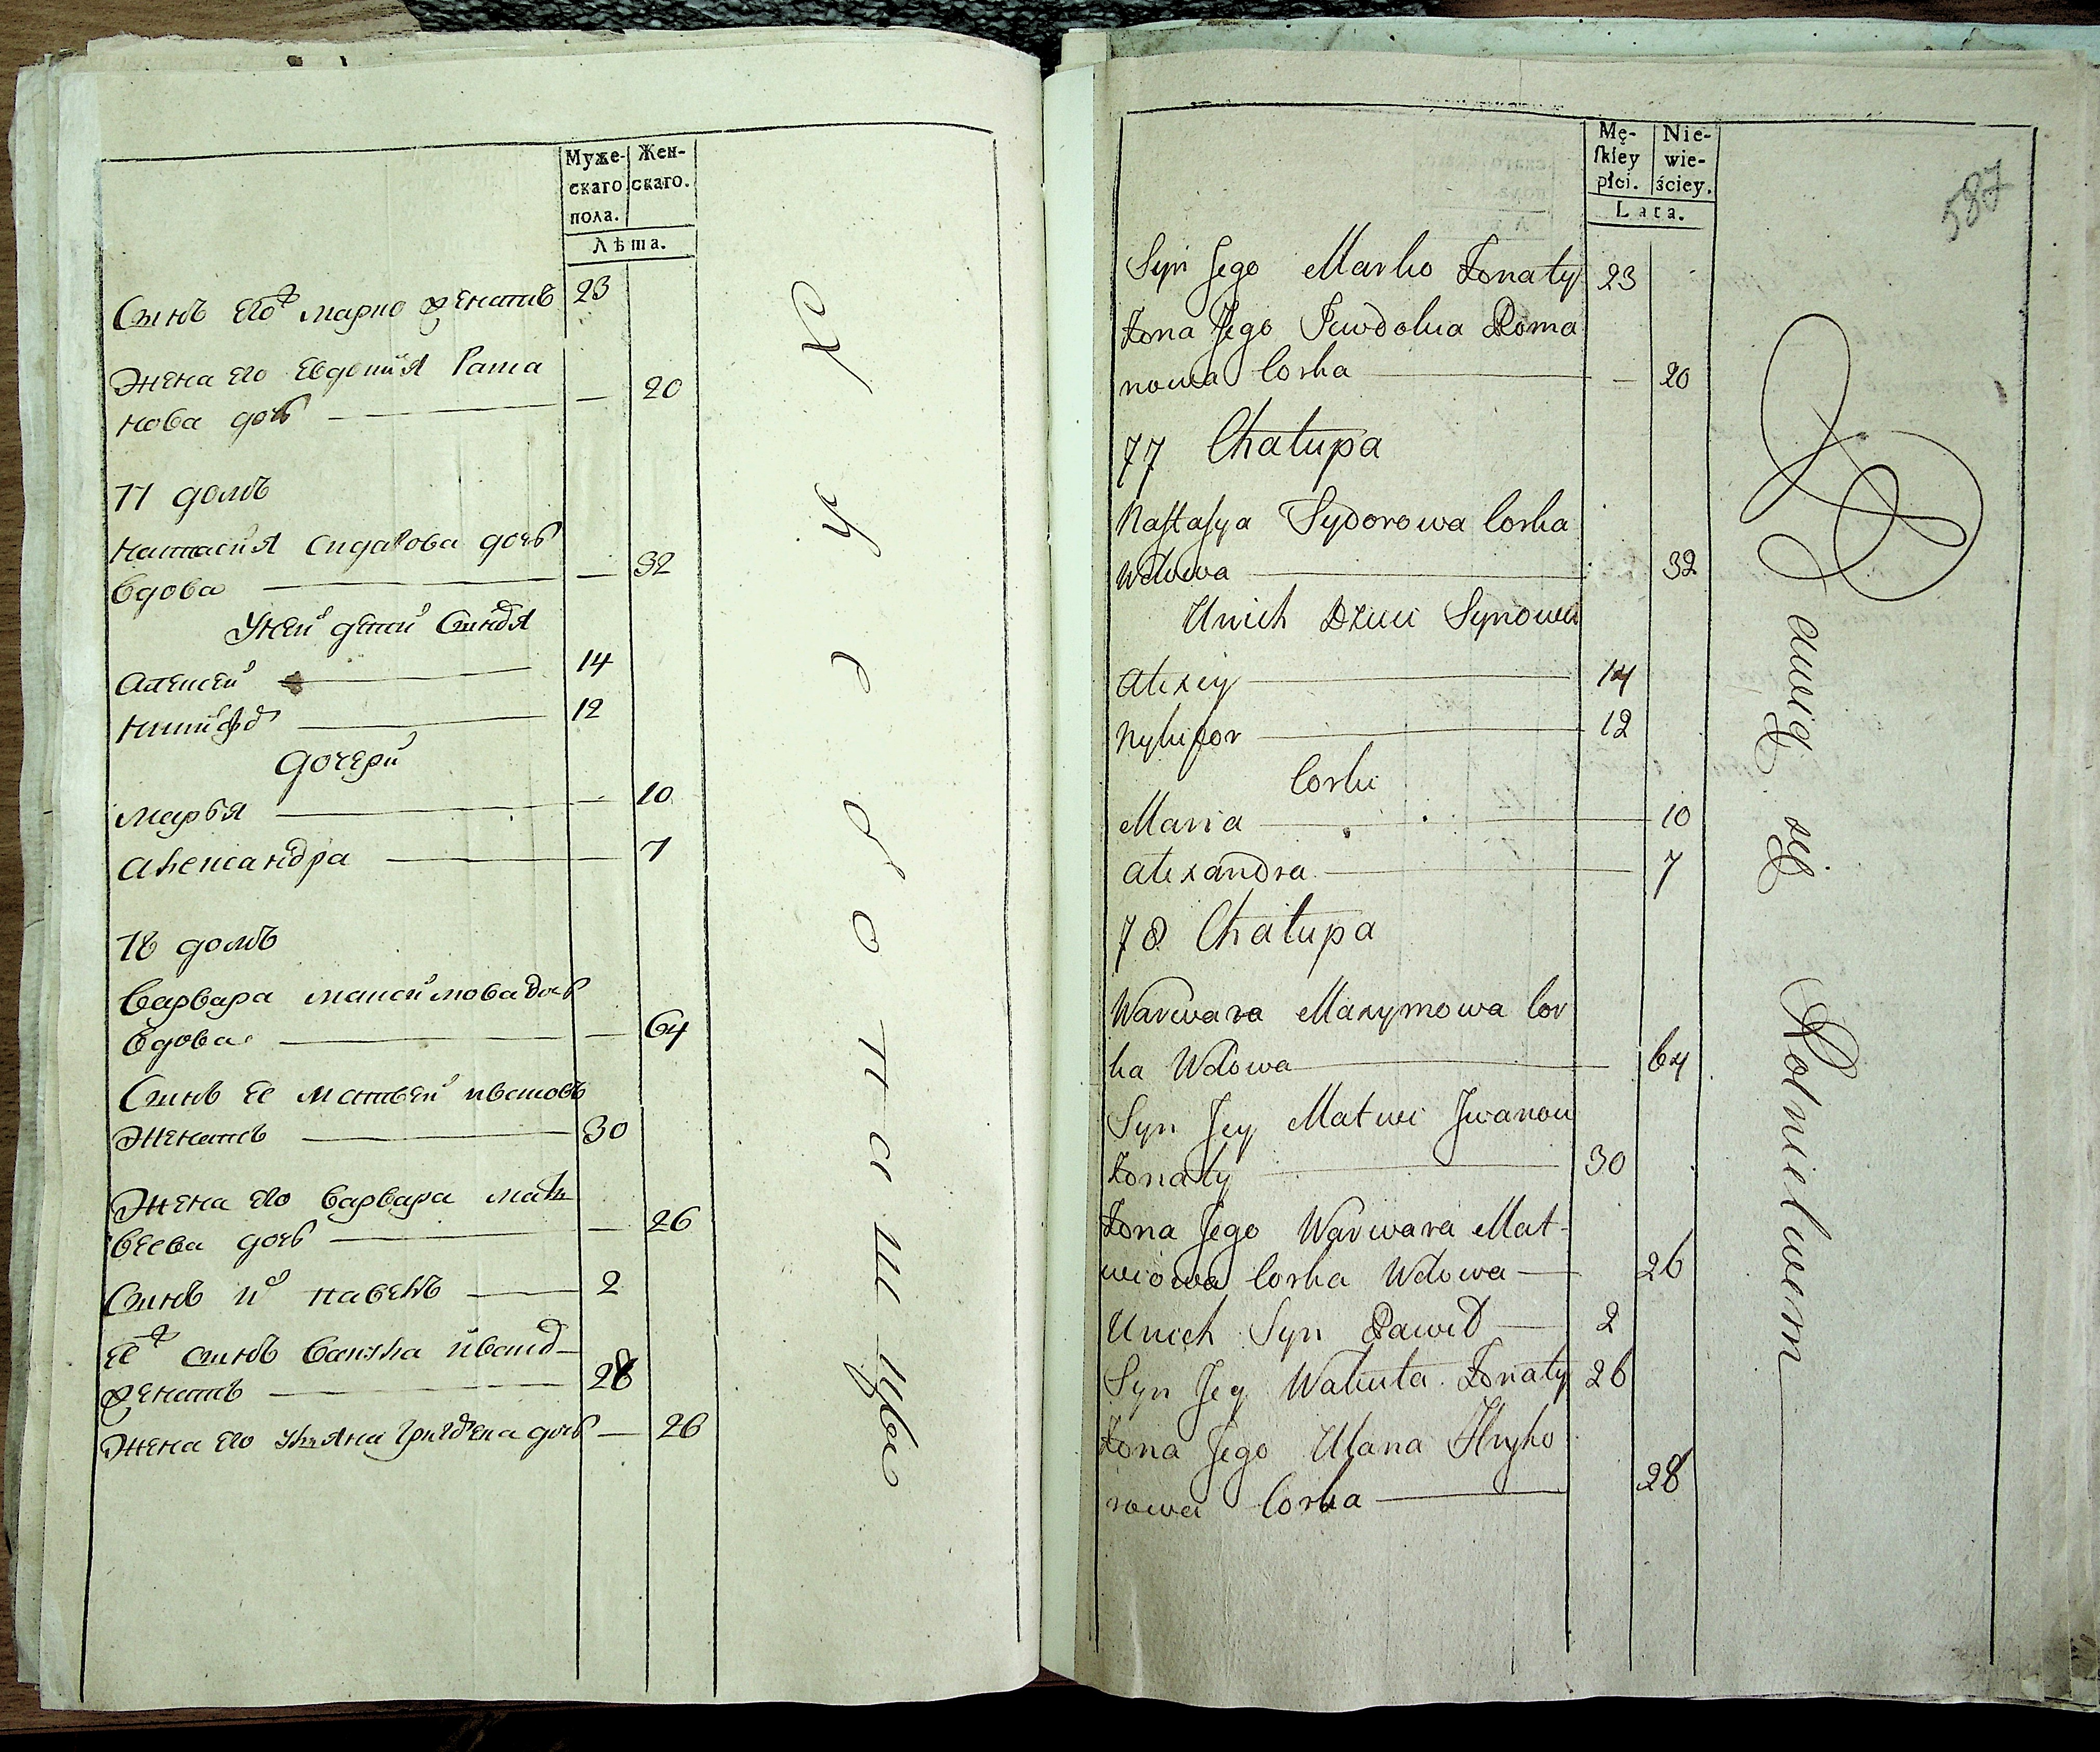 Муже- Жен-
скаго скаго.
пола.
Лѣта.
Сынъ его марко женатъ 23
Жена его Евдокия Рама
нова дочь — 20
77 домъ
Настасия Сидарова дочь
вдова — 32
У ней дети Сыновя
Алексей 14
Никифор 12
дочери
Марья — 10
Александра — 7
78 домъ
Варвара Максимова дочь
вдова — 64
Сынъ ее Матвей Ивановъ
Женатъ 30
Жена его Варвара Мат
веева дочь — 26
Сынъ их Павелъ 2
ее сынъ Иванов
женатъ 28
Жена его Ульяна дочь — 26
Mę- Nie-
skiey wie-
płci. ściey.
Lata.
587
Syn Jego Marko Żonaty 23
Żona Jego Jewdokia Roma
nowa Corka — 20
77 Chałupa
Nastasya Sydorowa Corka
Wdowa 32
Unich Dzieci Synowie
Alexiy 14
Nykifor 12
Corki
Maria 10
Alexandra 7
78 Chałupa
Warwara Maxymowa Cor
ka Wdowa 64
Syn Jey Matwi Jwanow
Żonaty 30
Żona Jego Warwara Mat-
wiowa Corka Wdowa 26
Unich Syn Paweł 2
Syn Jey Żonaty 26
Żona Jego Ulana Hryho
rowa Corka 28